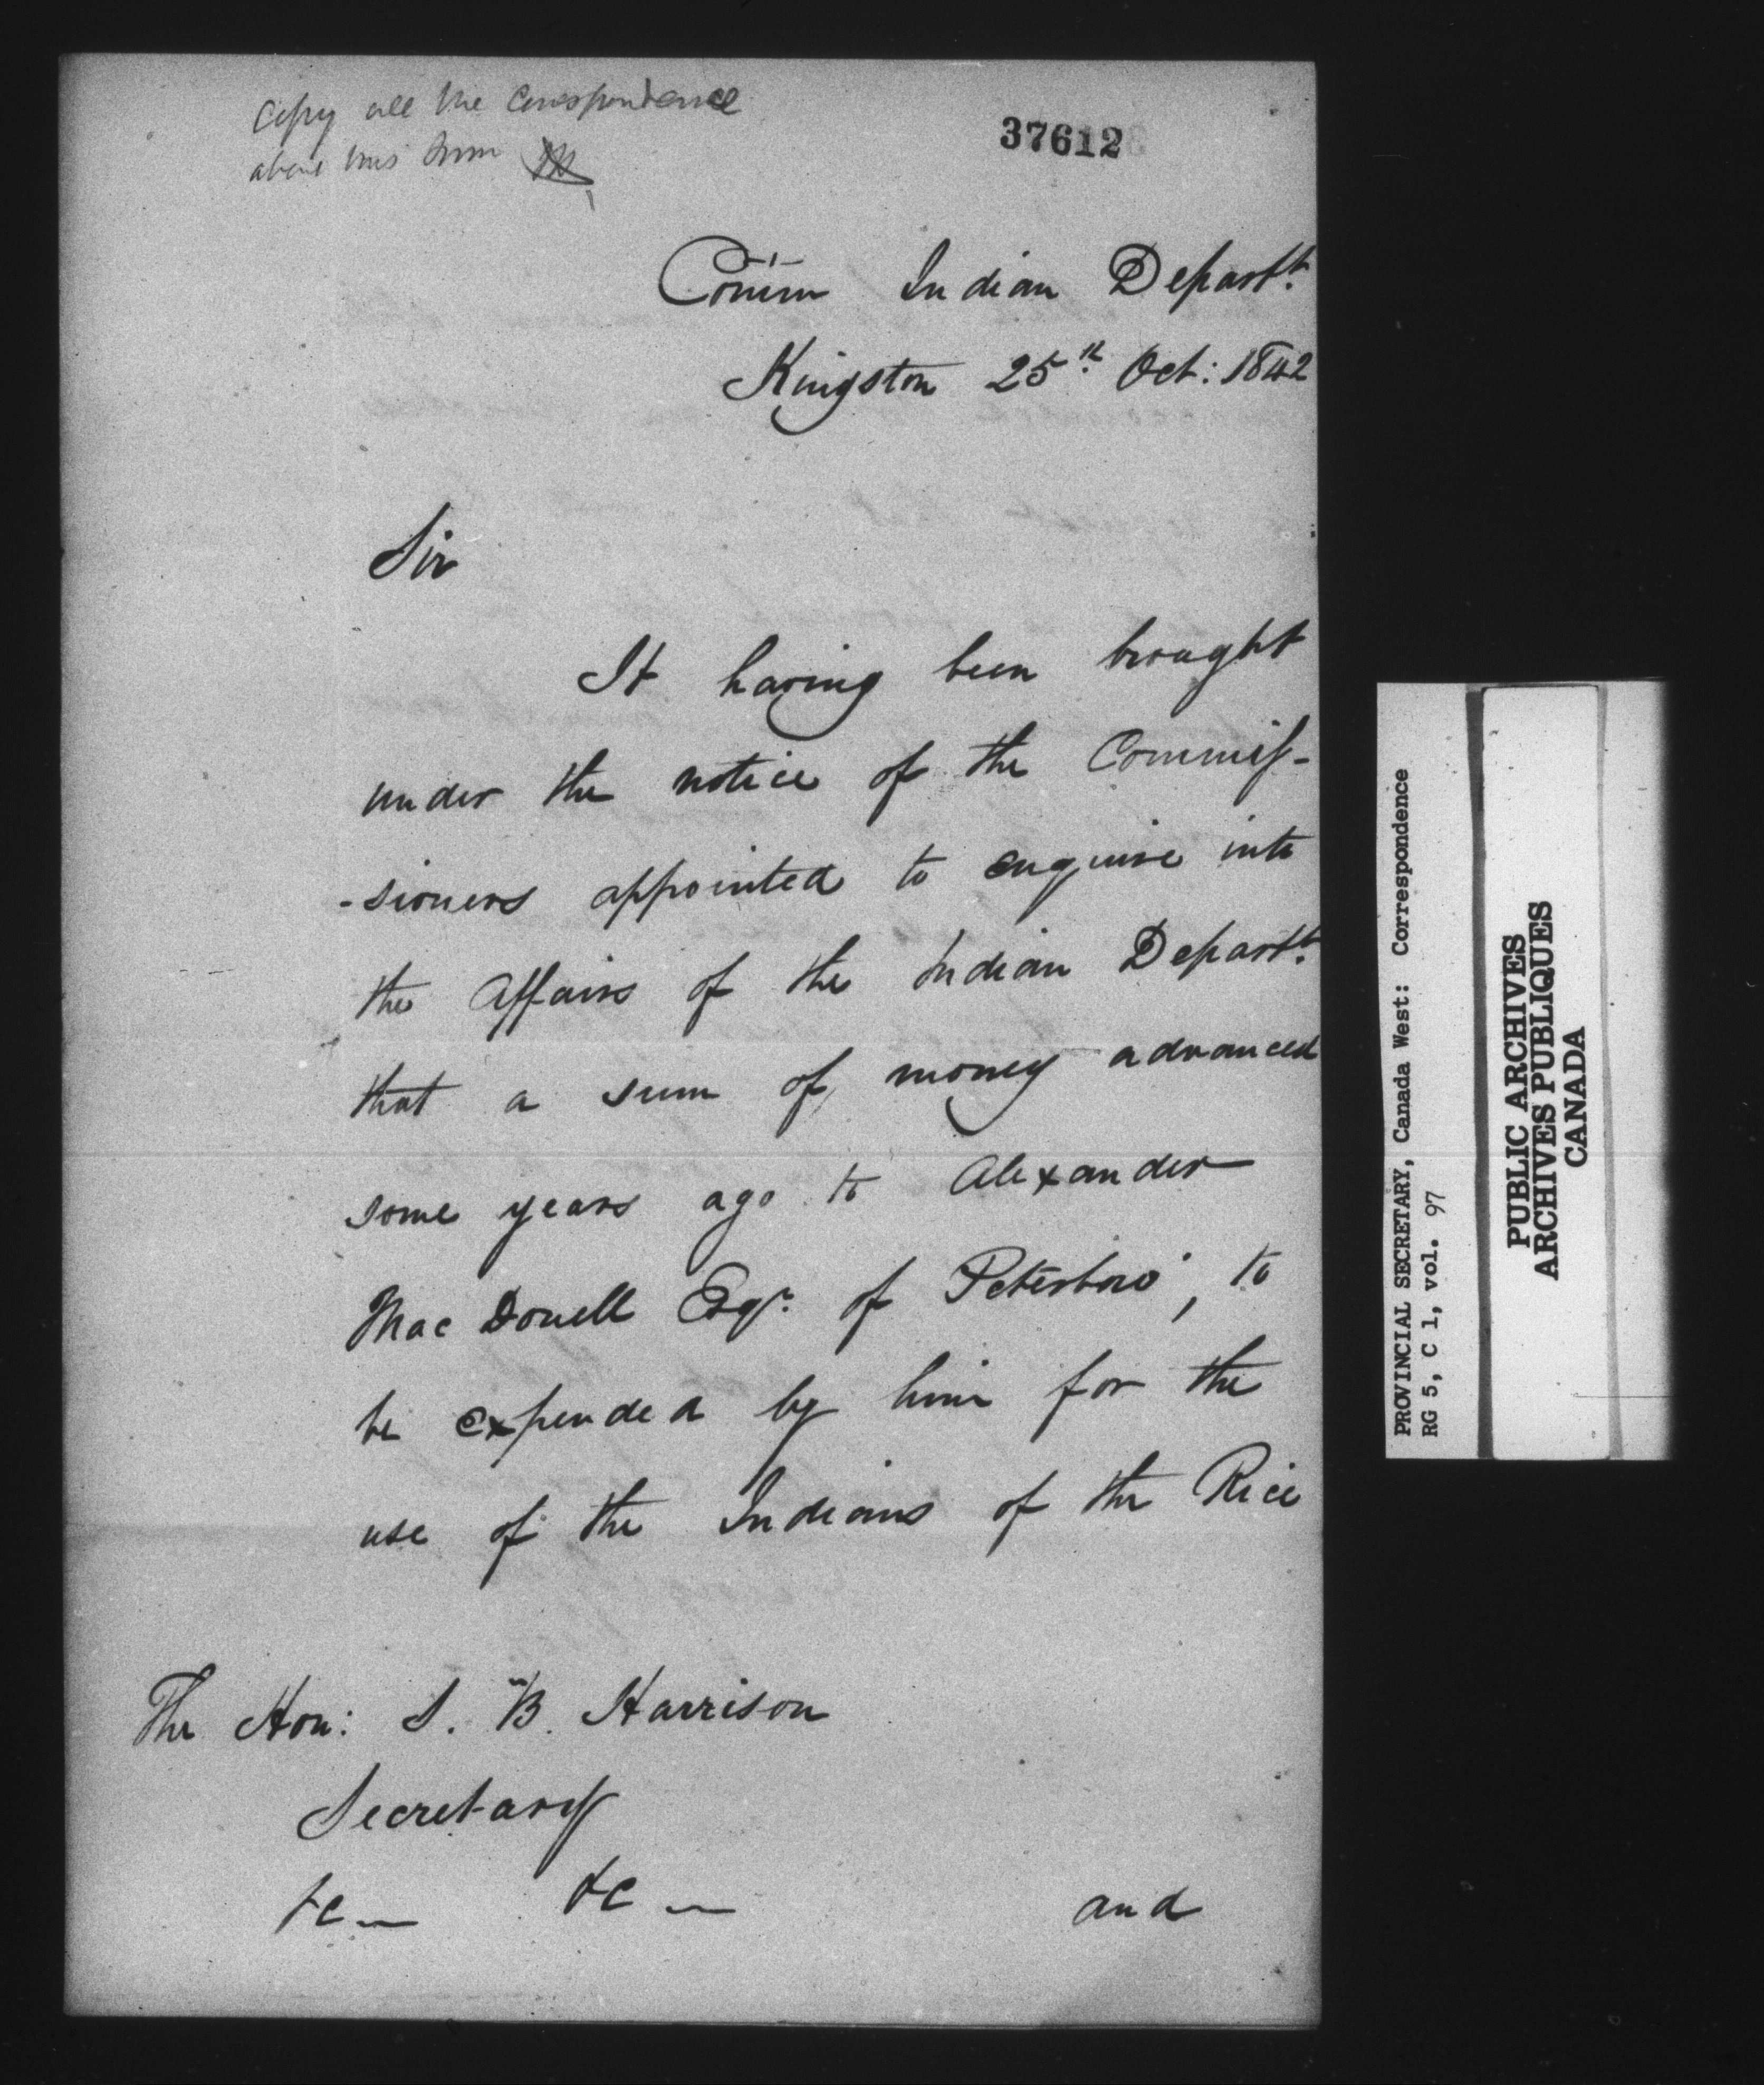 Copy all the Correspondence
about this
37612
Comm Indian Departt.
Kingston 25th. Oct: 1842
Sir
It having been brought
under the notice of the Commis-
-sioners appointed to enquire into
the Affairs of the Indian Departt.
that a sum of money advanced
some years ago to Alexander
MacDonell Esqr. of Peterboro', to
be expended by him for the
use of the Indians of the Rice
The Hon: S. B. Harrison
Secretary
&c &c
and
PROVINCIAL SECRETARY, Canada West: Correspondence
RG 5, C 1, vol. 97
PUBLIC ARCHIVES
ARCHIVES PUBLIQUES
CANADA